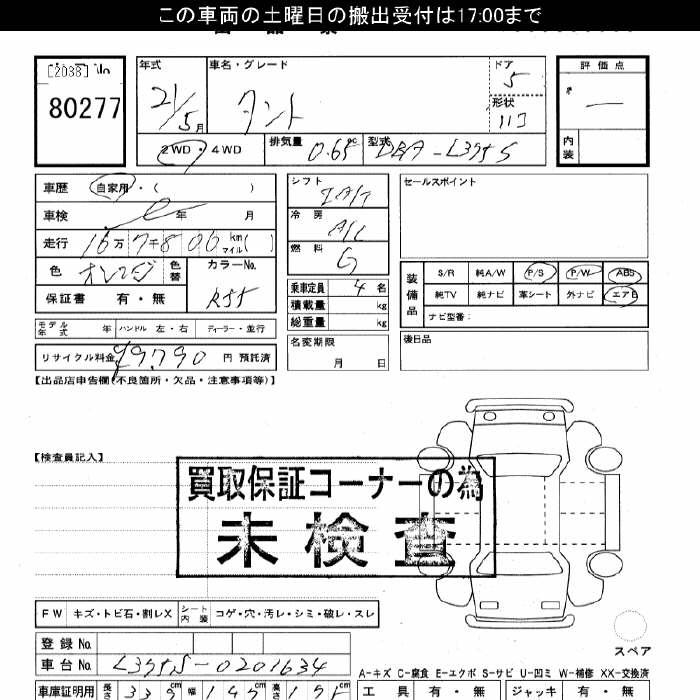 この車両の土曜日の搬出受付は17:00まで
[2038] No
80277
年式 21/5月
車名・グレード タント
ドア 5
形状 
評価点 —
内装
2WD・4WD
排気量 0.65 cc
型式 DBA-L375S
車歴 自家用・( )
車検 年 月
走行 16万7千806km マイル( )
色 オレンジ 色替 カラーNo. R55
保証書 有・無
シフト IAT
冷房 A/C
燃料 G
乗車定員 4名
積載量 kg
総重量 kg
セールスポイント
装備品 S/R 純A/W P/S P/W ABS
純TV 純ナビ 革シート 外ナビ エアB
ナビ型番：
モデル年式 年 ハンドル 左・右 ディーラー・並行
リサイクル料金 ¥9,790 円 預託済
名変期限 月 日
後日品
【出品店申告欄(不良箇所・欠品・注意事項等)】
【検査員記入】
買取保証コーナーの為
未検査
FW キズ・トビ石・割レX シート内装 コゲ・穴・汚レ・シミ・破レ・スレ
スペア
登録No.
車台No. L375S-0201634
A-キズ C-腐食 E-エクボ S-サビ U-凹ミ W-補修 XX-交換済
車庫証明用 長さ 339cm 幅 147cm 高さ 175cm
工具 有・無 ジャッキ 有・無